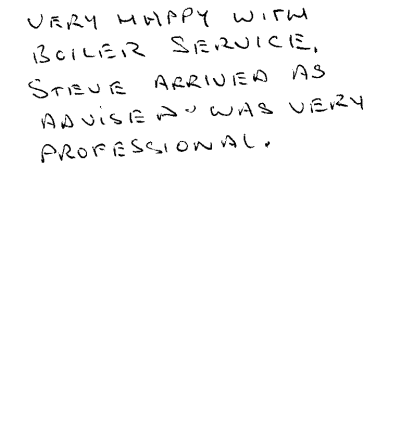 VERY HAPPY WITH
BOILER SERVICE.
STEVE ARRIVED AS
ADVISED & WAS VERY
PROFESSIONAL.